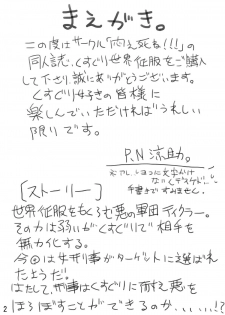 まえがき。
この度はサークル「悶え死ね!!!」の
同人誌、くすぐり世界征服をご購入
して下さり誠にありがとうございます。
くすぐり好きの皆様に
楽しんでいただければうれしい
限りです。
P.N 涼助。
手書きですみません。
[ストーリー]
世界征服をもくろむ悪の軍団ティクラー。
その力は弱いがくすぐりで相手を
無力化する。
今回は女刑事がターゲットに選ばれ
たようだ!
はたして、刑事はくすぐりに耐え悪を
ほろぼすことができるのか、、、、!?
2